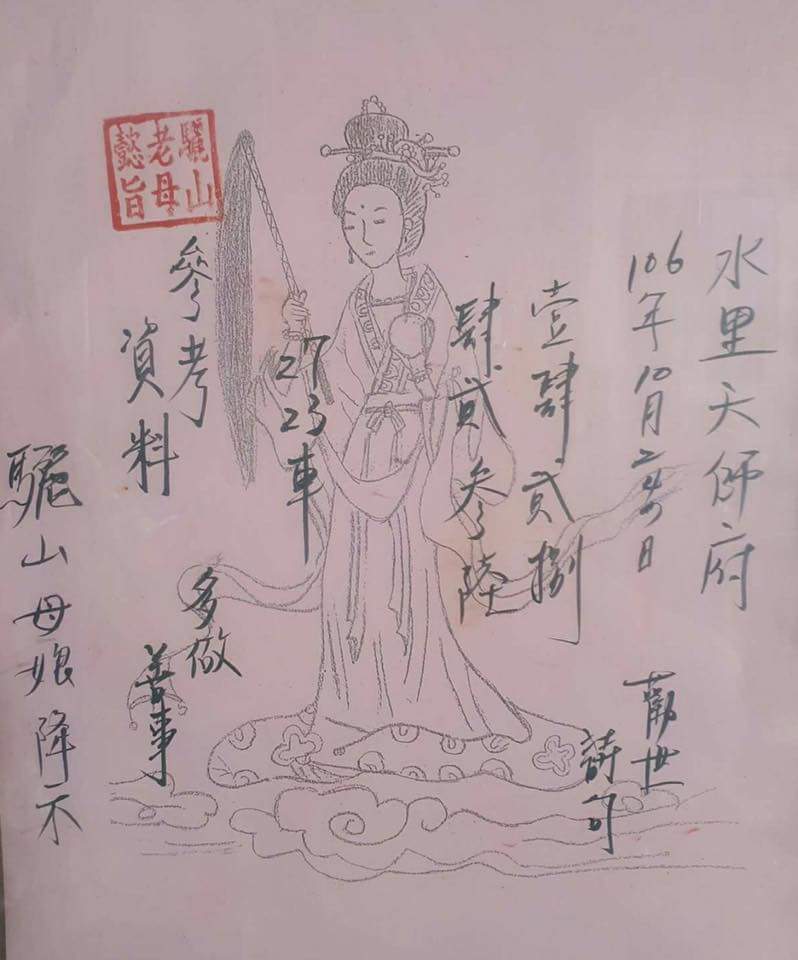 水里天師府
106年10月 日
勸世
詩句
壹肆貳捌
肆貳參陸
27
23車
參考
資料
多做
善事
驪山母娘降示
驪山
老母
懿旨